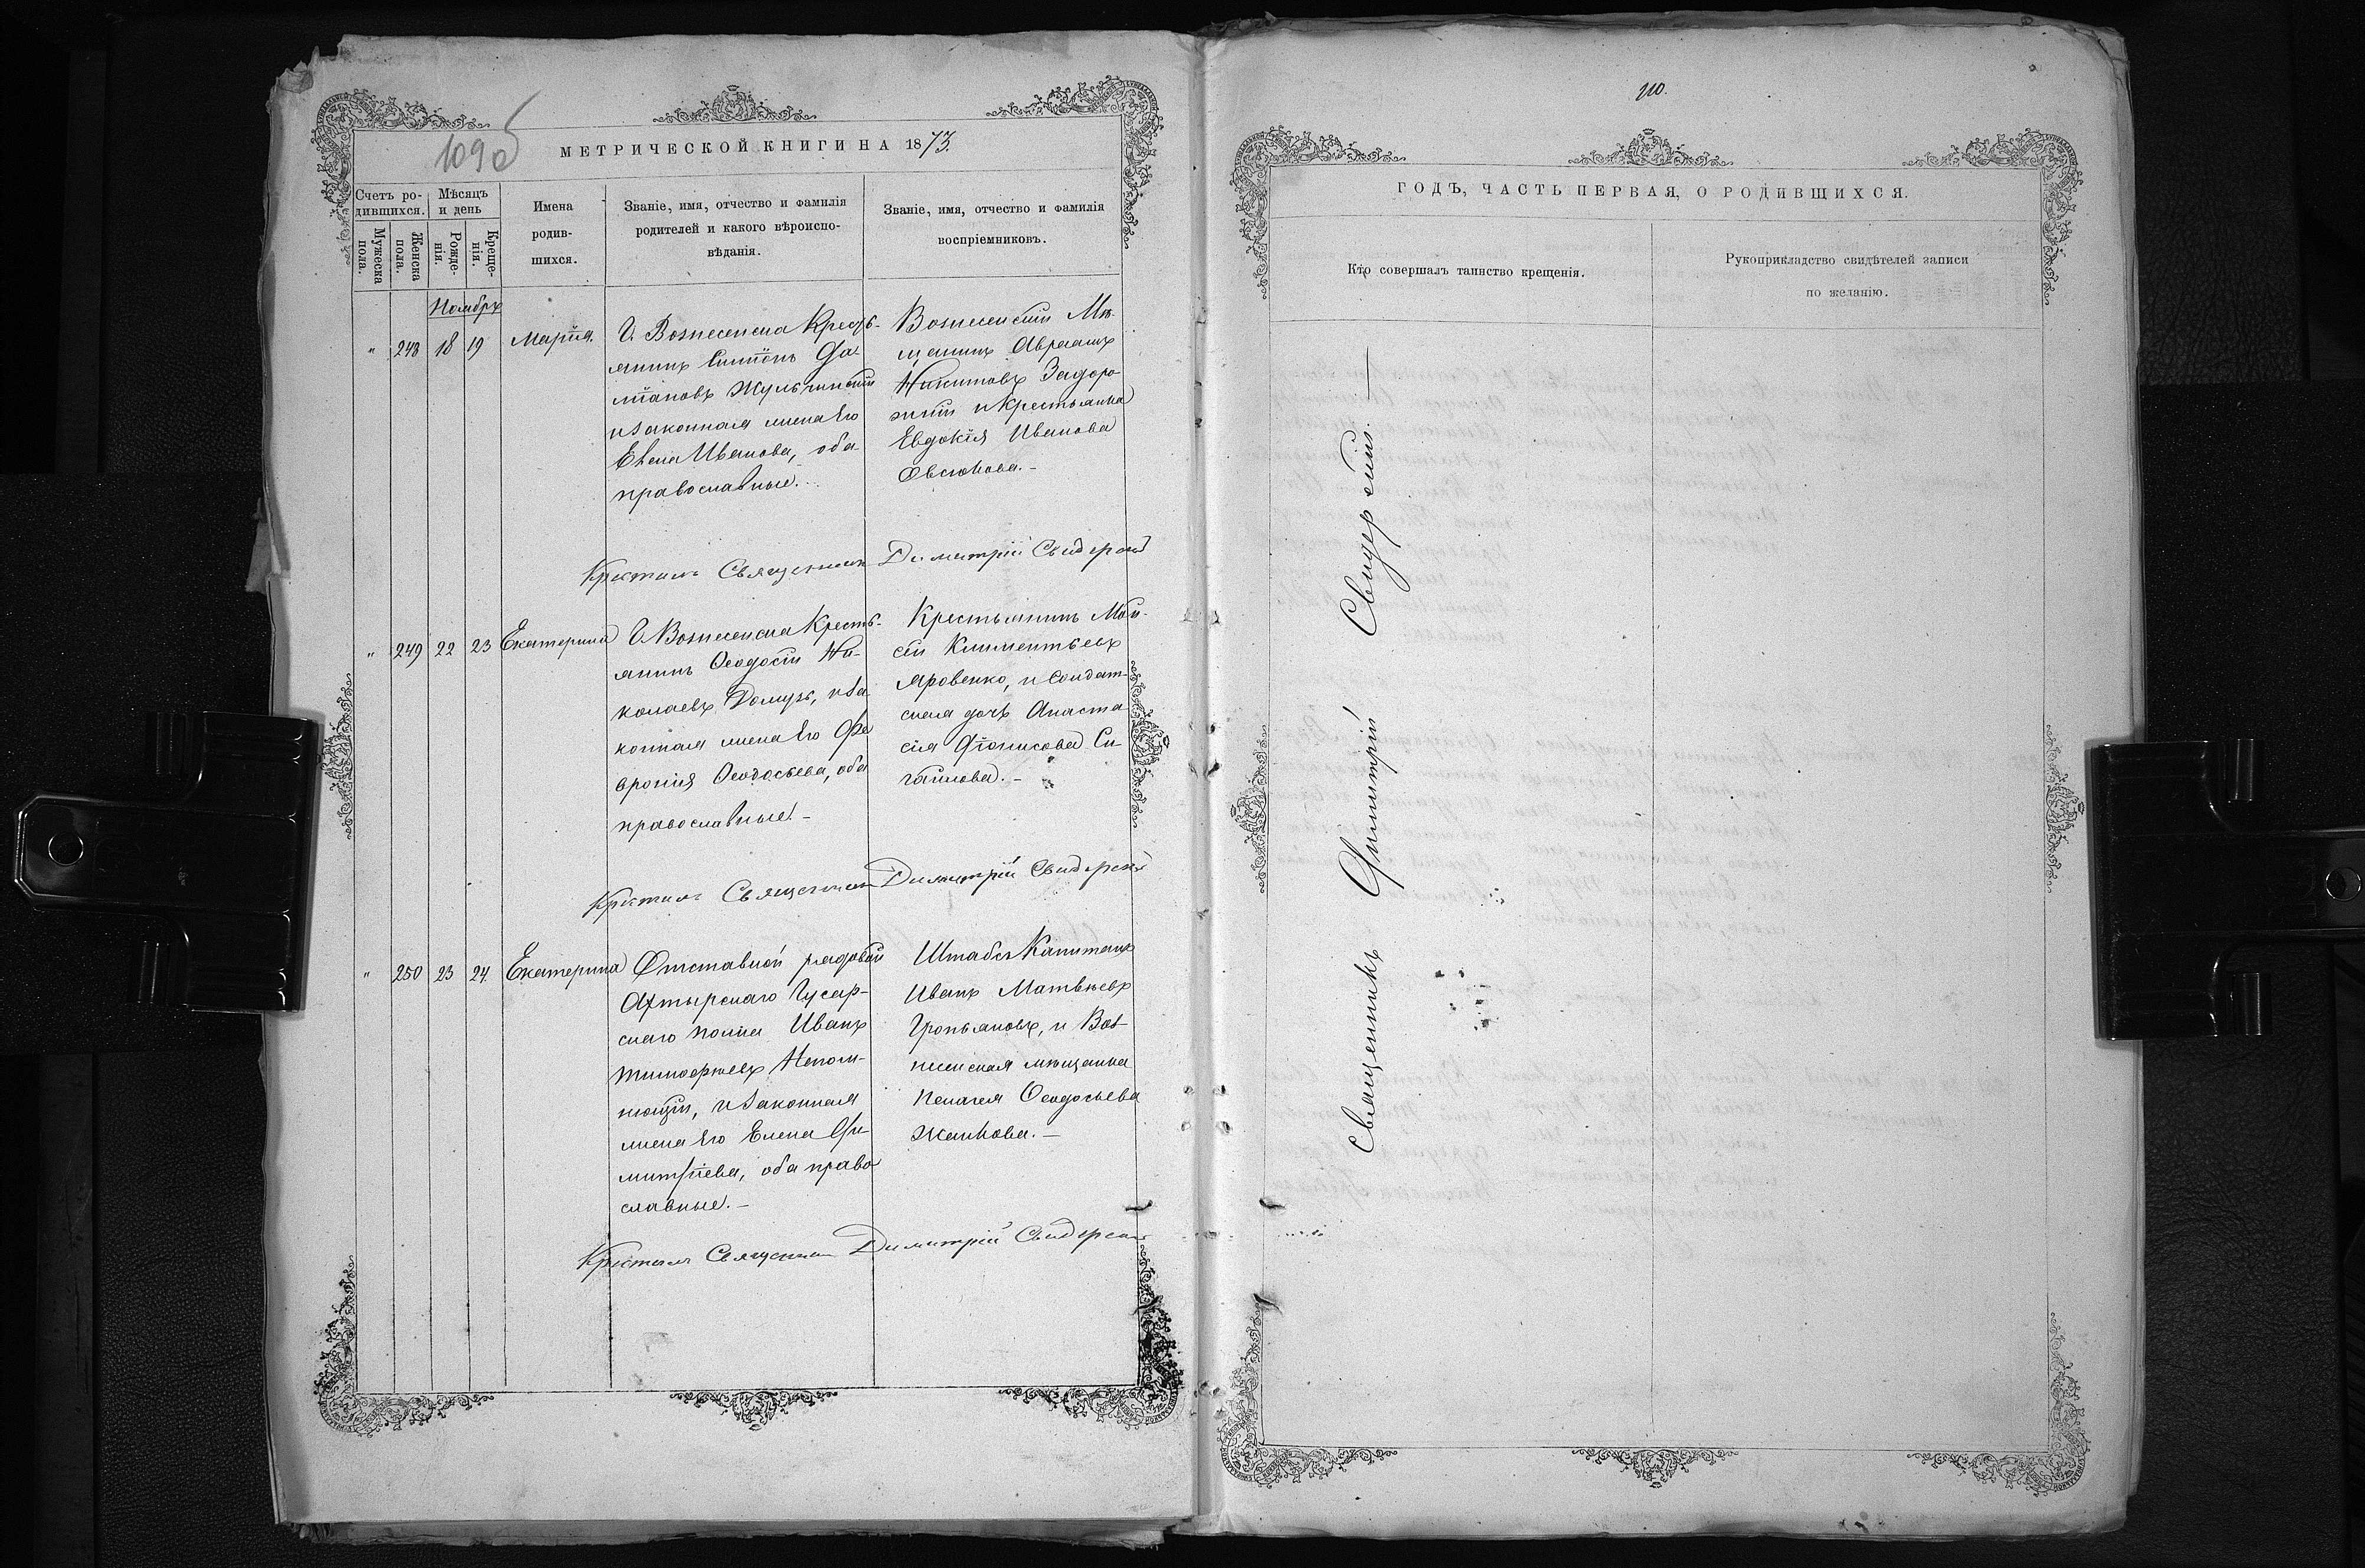 109об
МЕТРИЧЕСКОЙ КНИГИ НА 1873.
Счетъ ро-
дившихся.
Мѣсяцъ
и день
Мужеска
пола.
Женска
пола.
Рожде-
нія.
Креще-
нія.
Имена
родив-
шихся.
Званіе, имя, отчество и фамилія
родителей и какого вѣроиспо-
вѣданія.
Званіе, имя, отчество и фамилія
воспріемниковъ.
Ноябрь
" 248 18 19 Марія.
Г. Вознесенска Кресть-
янинъ
Жульчинскій
и законная жена его
Елена Иванова, оба
православные.
Вознесенскій Мѣ-
щанинъ Авраамъ
Никитовъ Задоро-
жній и Крестьянка
Евдокія Иванова
Овсюкова.-
Крестилъ Священникъ Димитрій Свидерскій
" 249 22 23 Екатерина
Г. Вознесенска Кресть-
янинъ Ѳеодосій Ни-
колаевъ и за
конная жена его Фе
вронія Ѳеодосьева, оба
православные.-
Крестьянинъ Мои-
сей Климентьевъ
Яровенко, и Солдат-
ская дочь Анаста
сія Діонисова Си-
гайлова.-
Крестилъ Священникъ Димитрій Свидерскій
" 250 23 24. Екатерина
Отставной рядовой
Ахтырскаго Гусар-
скаго полка Иванъ
Тимоѳеевъ Непом-
нющій, и законная
жена его Елена Ди-
митріева, оба право
славные.-
Штабсъ Капитанъ
Иванъ Матвѣевъ
и Воз-
несенская мѣщанка
Пелагея Ѳеодосьева
Жалкова.-
Крестилъ Священникъ Димитрій Свидерскій
110.
ГОДЪ, ЧАСТЬ ПЕРВАЯ, О РОДИВШИХСЯ.
Кто совершалъ таинство крещенія.
Рукоприкладство свидѣтелей записи
по желанію.
Священникъ Димитрій Свидерскій.—